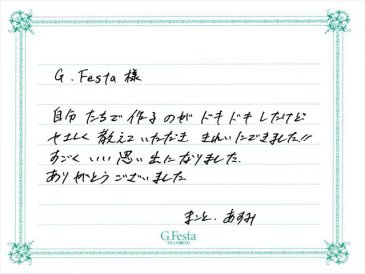 G.Festa 様
自分たちで作るのがドキドキしたけど
やさしく教えていただき、きれいにできました!!
すごくいい思い出になりました。
ありがとうございました
まこと、あすみ
G.Festa
DIAMOND